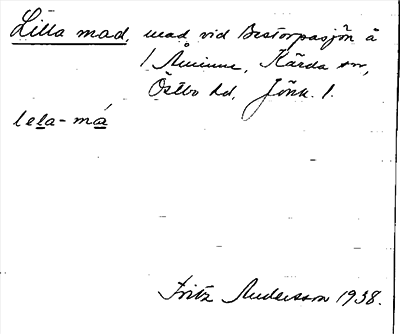 Lilla mad, mad vid Bestorpasjön å
1 Åminne, Kärda sn,
Östbo hd, Jönk. l.
lela-má
Fritz Andersson 1938.